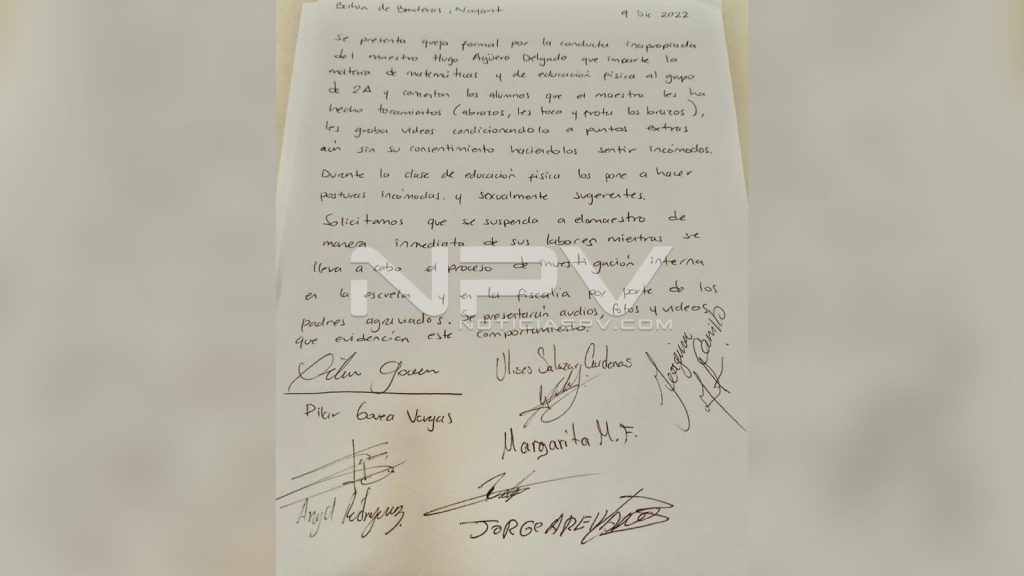 Bahía de Banderas, Nayarit 9 Dic 2022
Se presenta queja formal por la conducta inapropiada
del maestro Hugo Agüero Delgado que imparte la
materia de matemáticas y de educación física al grupo
de 2A y comentan los alumnos que el maestro les ha
hecho tocamientos (abrazos, les toca y frota los brazos),
les graba videos condicionandolo a puntos extras
aún sin su consentimiento haciéndolos sentir incómodos.
Durante la clase de educación física los pone a hacer
posturas incómodas. y sexualmente sugerentes.
Solicitamos que se suspenda a el maestro de
manera inmediata de sus labores mientras se
lleva a cabo el proceso de investigación interna
en la escuela y en la fiscalía por parte de los
padres agraviados. Se presentarán audios, fotos y videos
que evidencian este comportamiento.
NPV
NOTICIASPV.COM
Ulises Salazar Cardenas
Joaquin
Pilar Govea Vargas
Margarita M. F.
Angel Rodríguez
JORGE